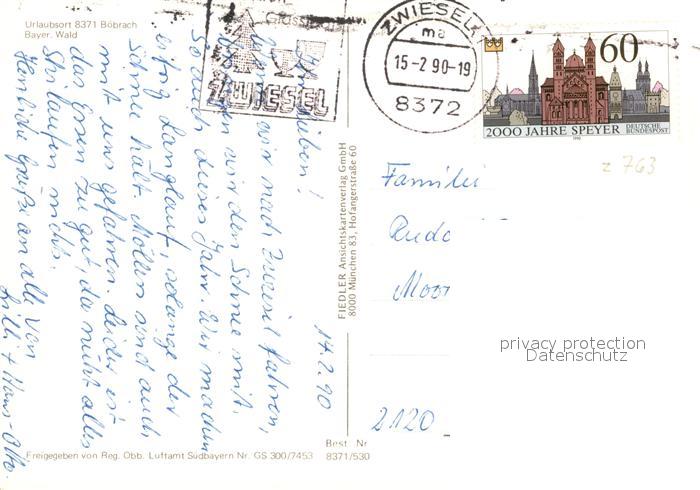 Urlaubsort 8371 Böbrach
Bayer. Wald
ZWIESEL
ZWIESEL
ma
15-2 90-19
8372
60
2000 JAHRE SPEYER
DEUTSCHE
BUNDESPOST
1990
z 763
Ihr Lieben!
wenn wir nach Zwiesel fahren,
wir den Schnee mit.
So auch dieses Jahr. Wir machen
eifrig Langlauf, solange der
Schnee hält. Möllers sind auch
mit uns gefahren. Leider ist
das Essen zu gut, da nützt alles
Skilaufen nichts.
Herzliche Grüße an alle von
Lilli + Hans-Otto.
14.2.90
FIEDLER Ansichtskartenverlag GmbH
8000 München 83, Hofangerstraße 60
Familie
Rudo
Moor
2120
privacy protection
Datenschutz
Freigegeben von Reg. Obb. Luftamt Südbayern Nr. GS 300/7453
Best. Nr
8371/530